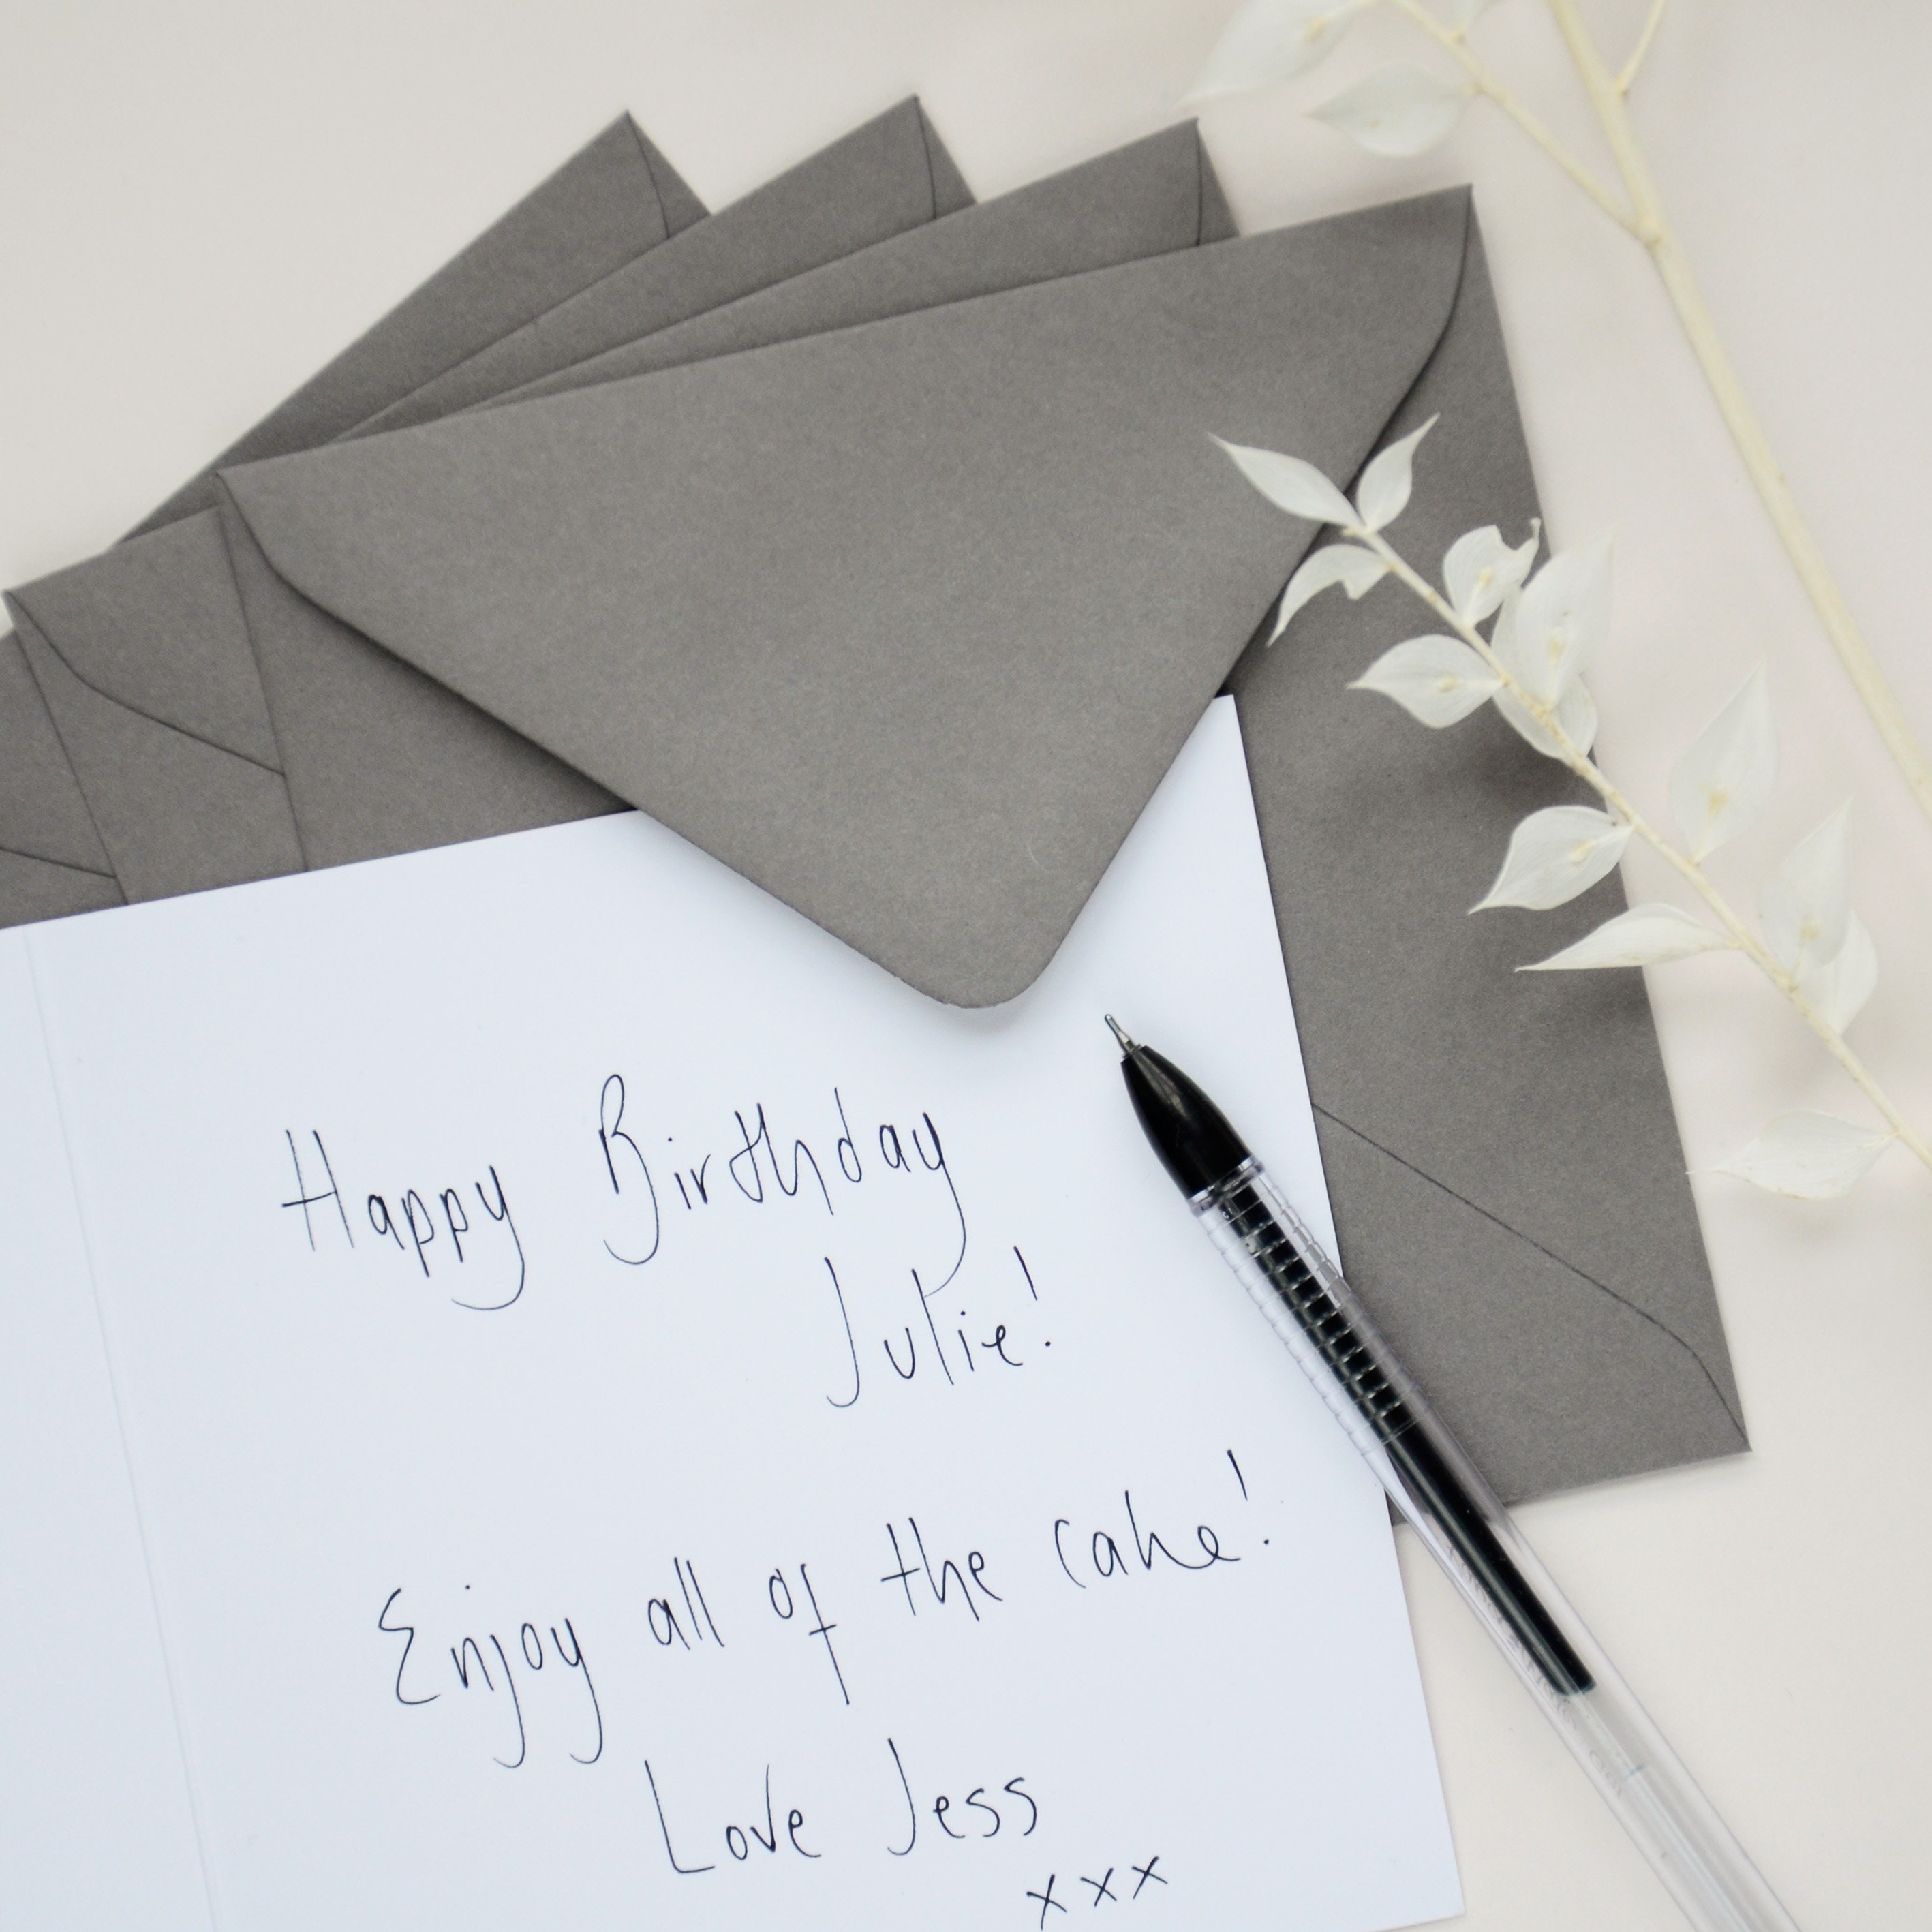 Happy Birthday
Julie!
Enjoy all of the cake!
Love Jess
xxx